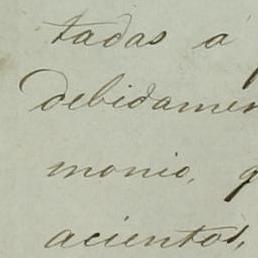 tadas á
debidamen
monio, q
acientos,